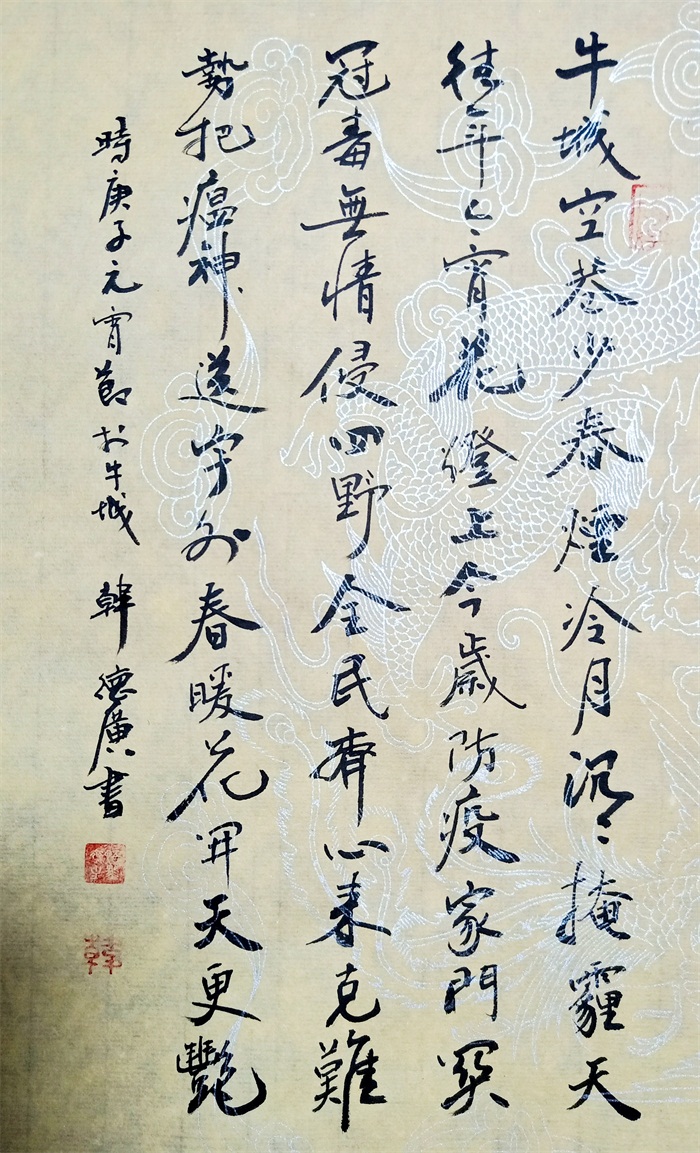 牛城空巷少春煙冷月沉々掩霾天
往年元宵花燈上今歲防疫家門関
冠毒無情侵四野全民齊心來克難
勢把瘟神送宇外春暖花開天更艷
時庚子元宵節於牛城 韓德廣書
韓